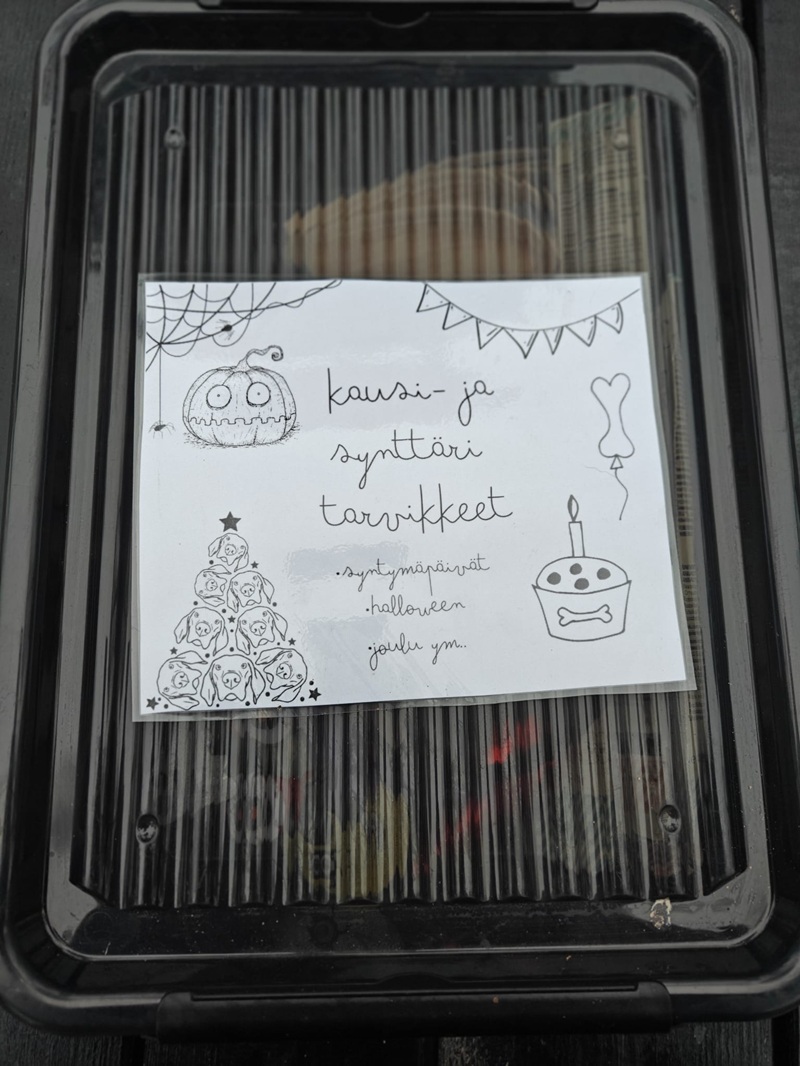 kausi- ja
synttäri
tarvikkeet
•syntymäpäivät
•halloween
•joulu ym..